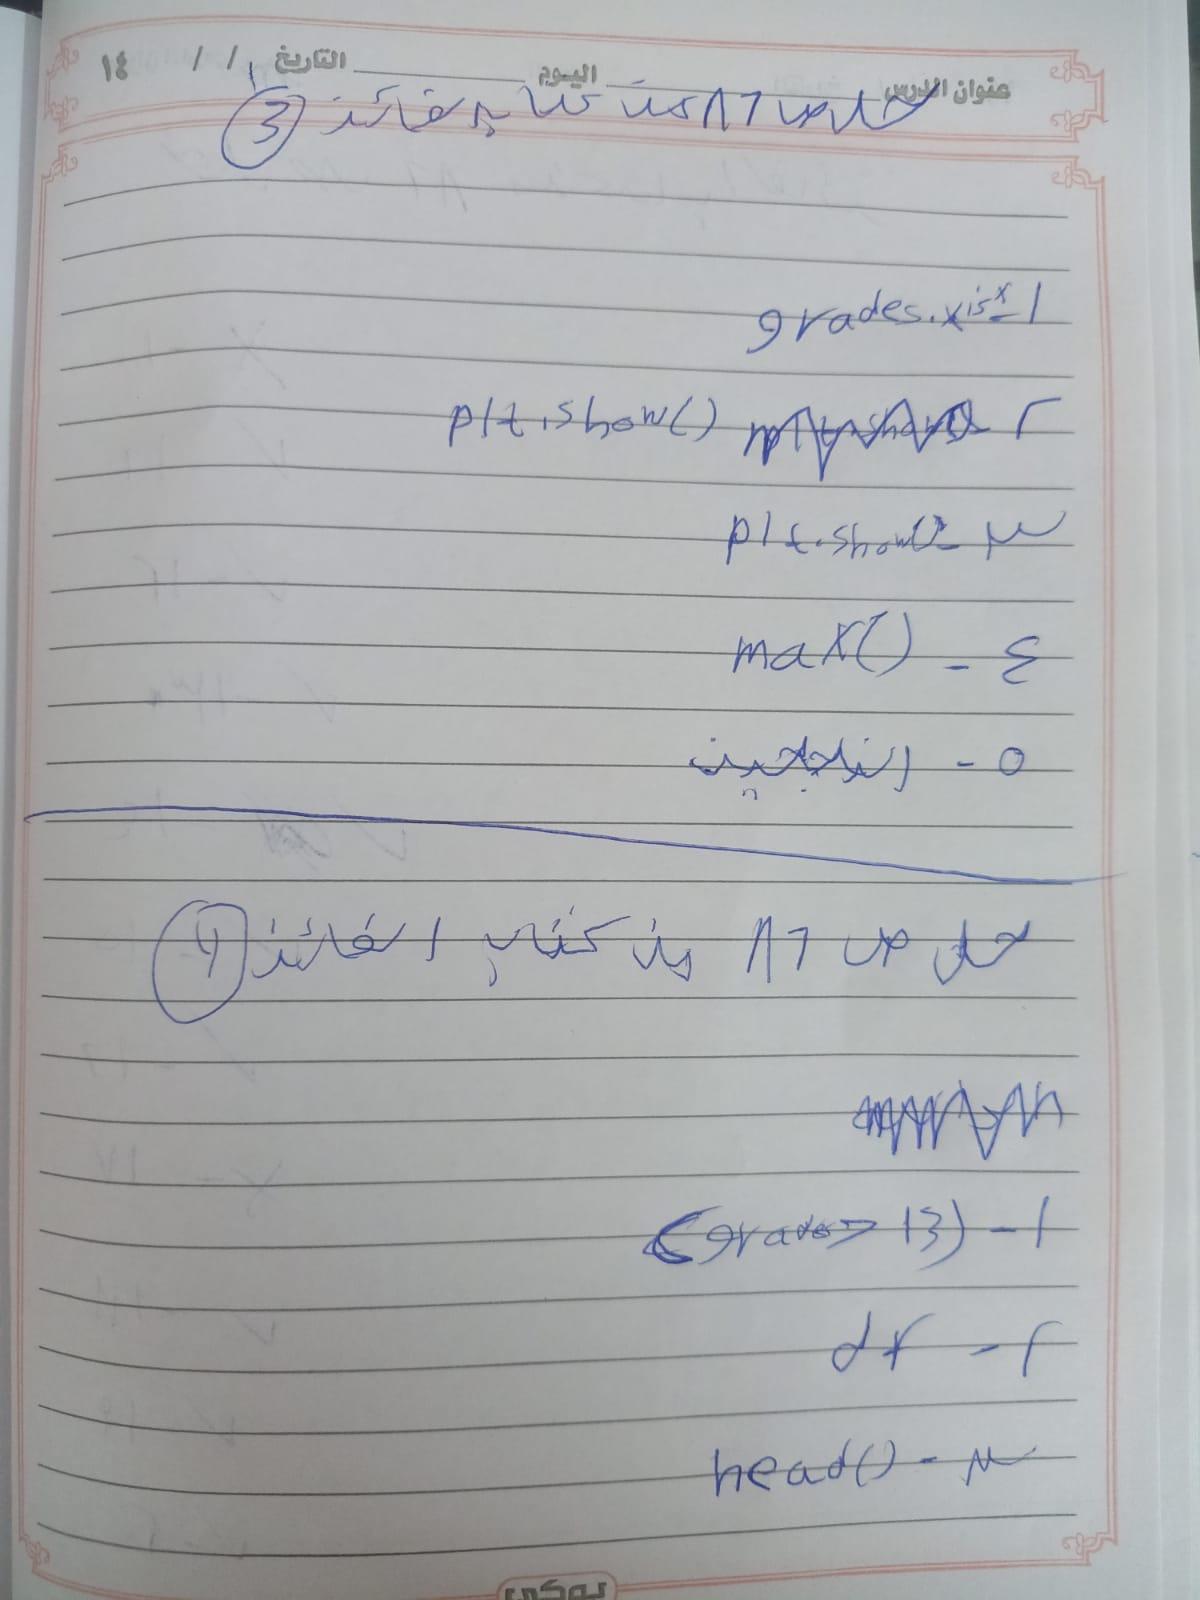 عنوان الدرس اليوم التاريخ / / ١٤
حل ص ٨٦ من كتاب الفائز (3)
١- grades.xis
٢ plt.show()
٣- plt.show()
٤- max()
٥- الناجحين
حل ص ٨٦ من كتاب الفائز (4)
١- (grades > 13)
٢- df
٣- head()